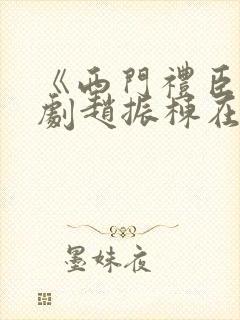 《西門禮臣
劇趙振棟在
墨妹夜